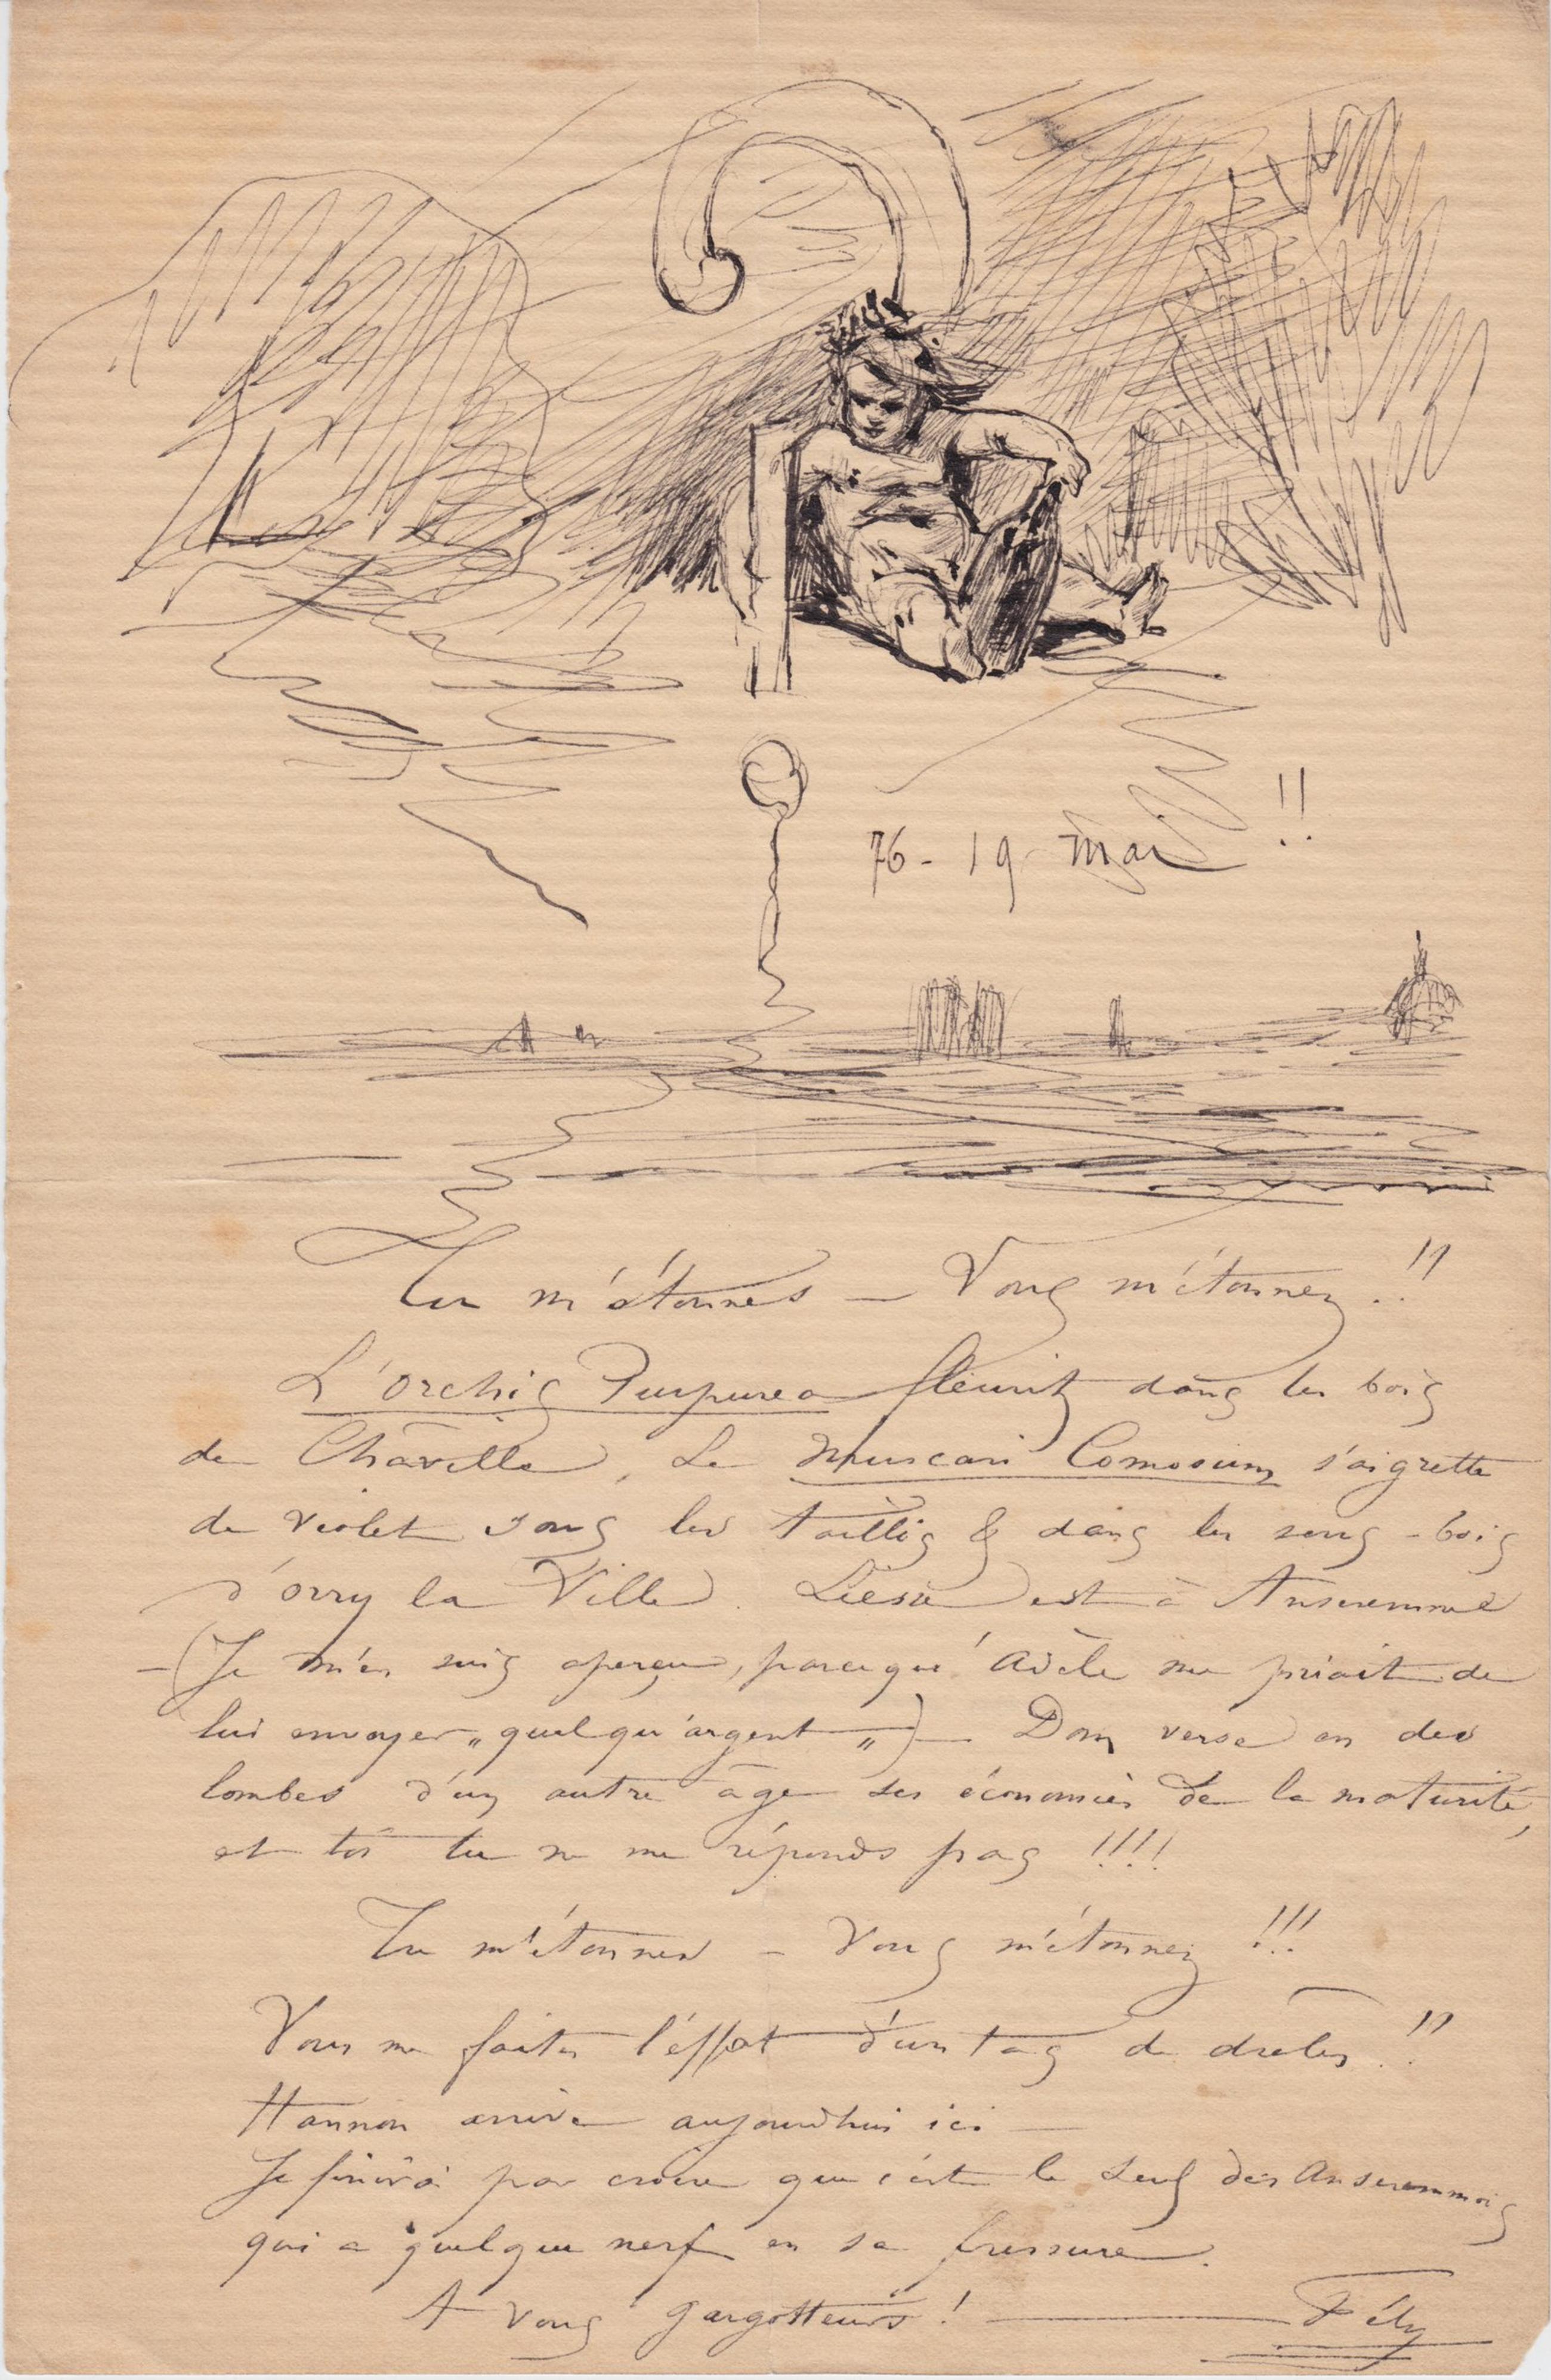 76 - 19 mai !!
Tu m'étonnes — Vous m'étonnez !!
L'orchis Purpurea fleurit dans les bois
de Chaville, Le Muscari Comosum s'aigrette
de violet sous les taillis & dans les sous-bois
d'orry la Ville. Liesse est à Anseremme
— (Je m'en suis aperçu, parceque Adèle me priait de
lui envoyer „ quelqu'argent „ ) — Dom verse en des
lombes d'un autre âge ses économies de la maturité,
et toi tu ne me réponds pas !!!!
Tu m'étonnes — Vous m'étonnez !!!
Vous me faites l'effet d'un tas de drôles !!
Hannon arrive aujourdhui ici —
Je finirai par croire que c'est le seul des Anseremmois
qui a quelque nerf en sa fressure.
A vous gargotteurs ! — Fély